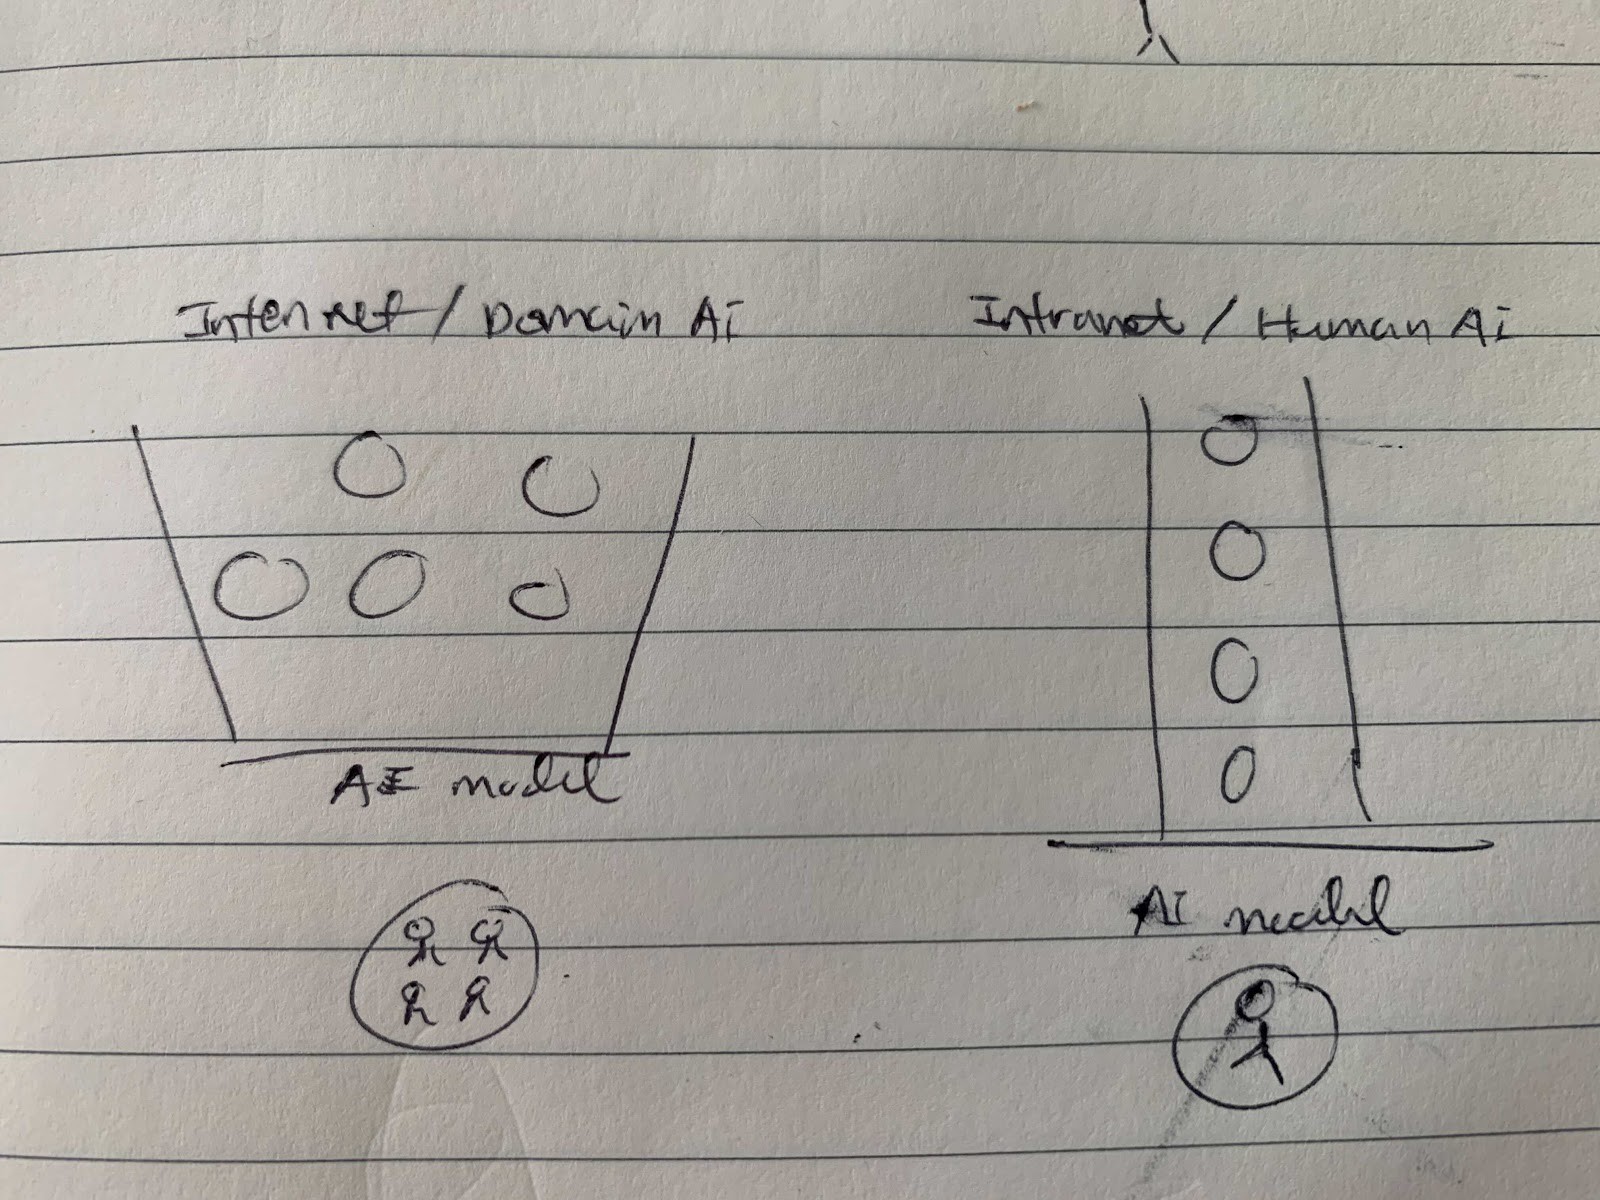 Internet / Domain Ai
Intranet / Human Ai
AI model
AI model